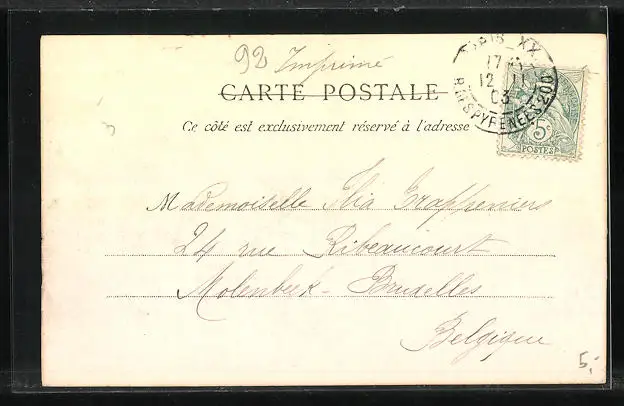 92 Imprimé
CARTE POSTALE
Ce côté est exclusivement réservé à l'adresse
PARIS XX
17
12 11
03
R. DES PYRENEES 200
5c
POSTES
Mademoiselle
24 rue Ribeaucourt
Molenbeek - Bruxelles
Belgique
5,-